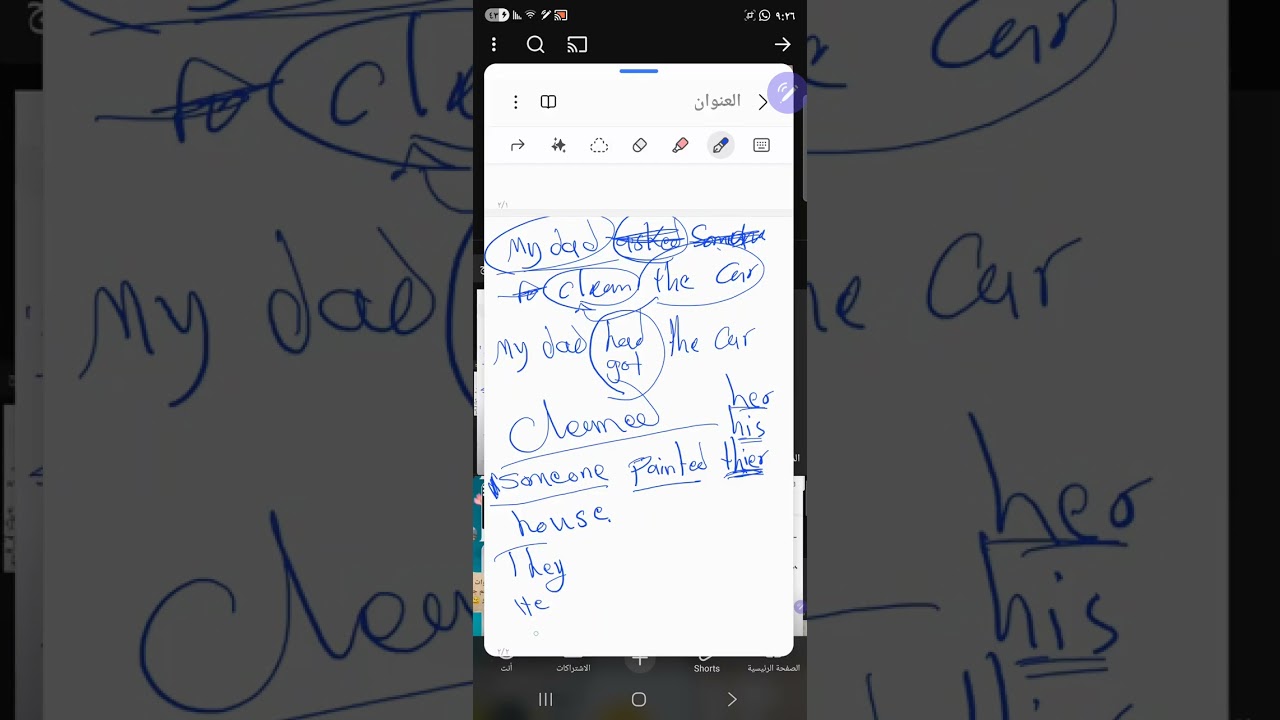 ٤٣
٩:٢٦
العنوان
٢/١
My dad asked
to clean the car
My dad had the car
got
cleaned
her
his
someone painted thier
house.
They
He
٢/٢
أنت
الاشتراكات
Shorts
الصفحة الرئيسية